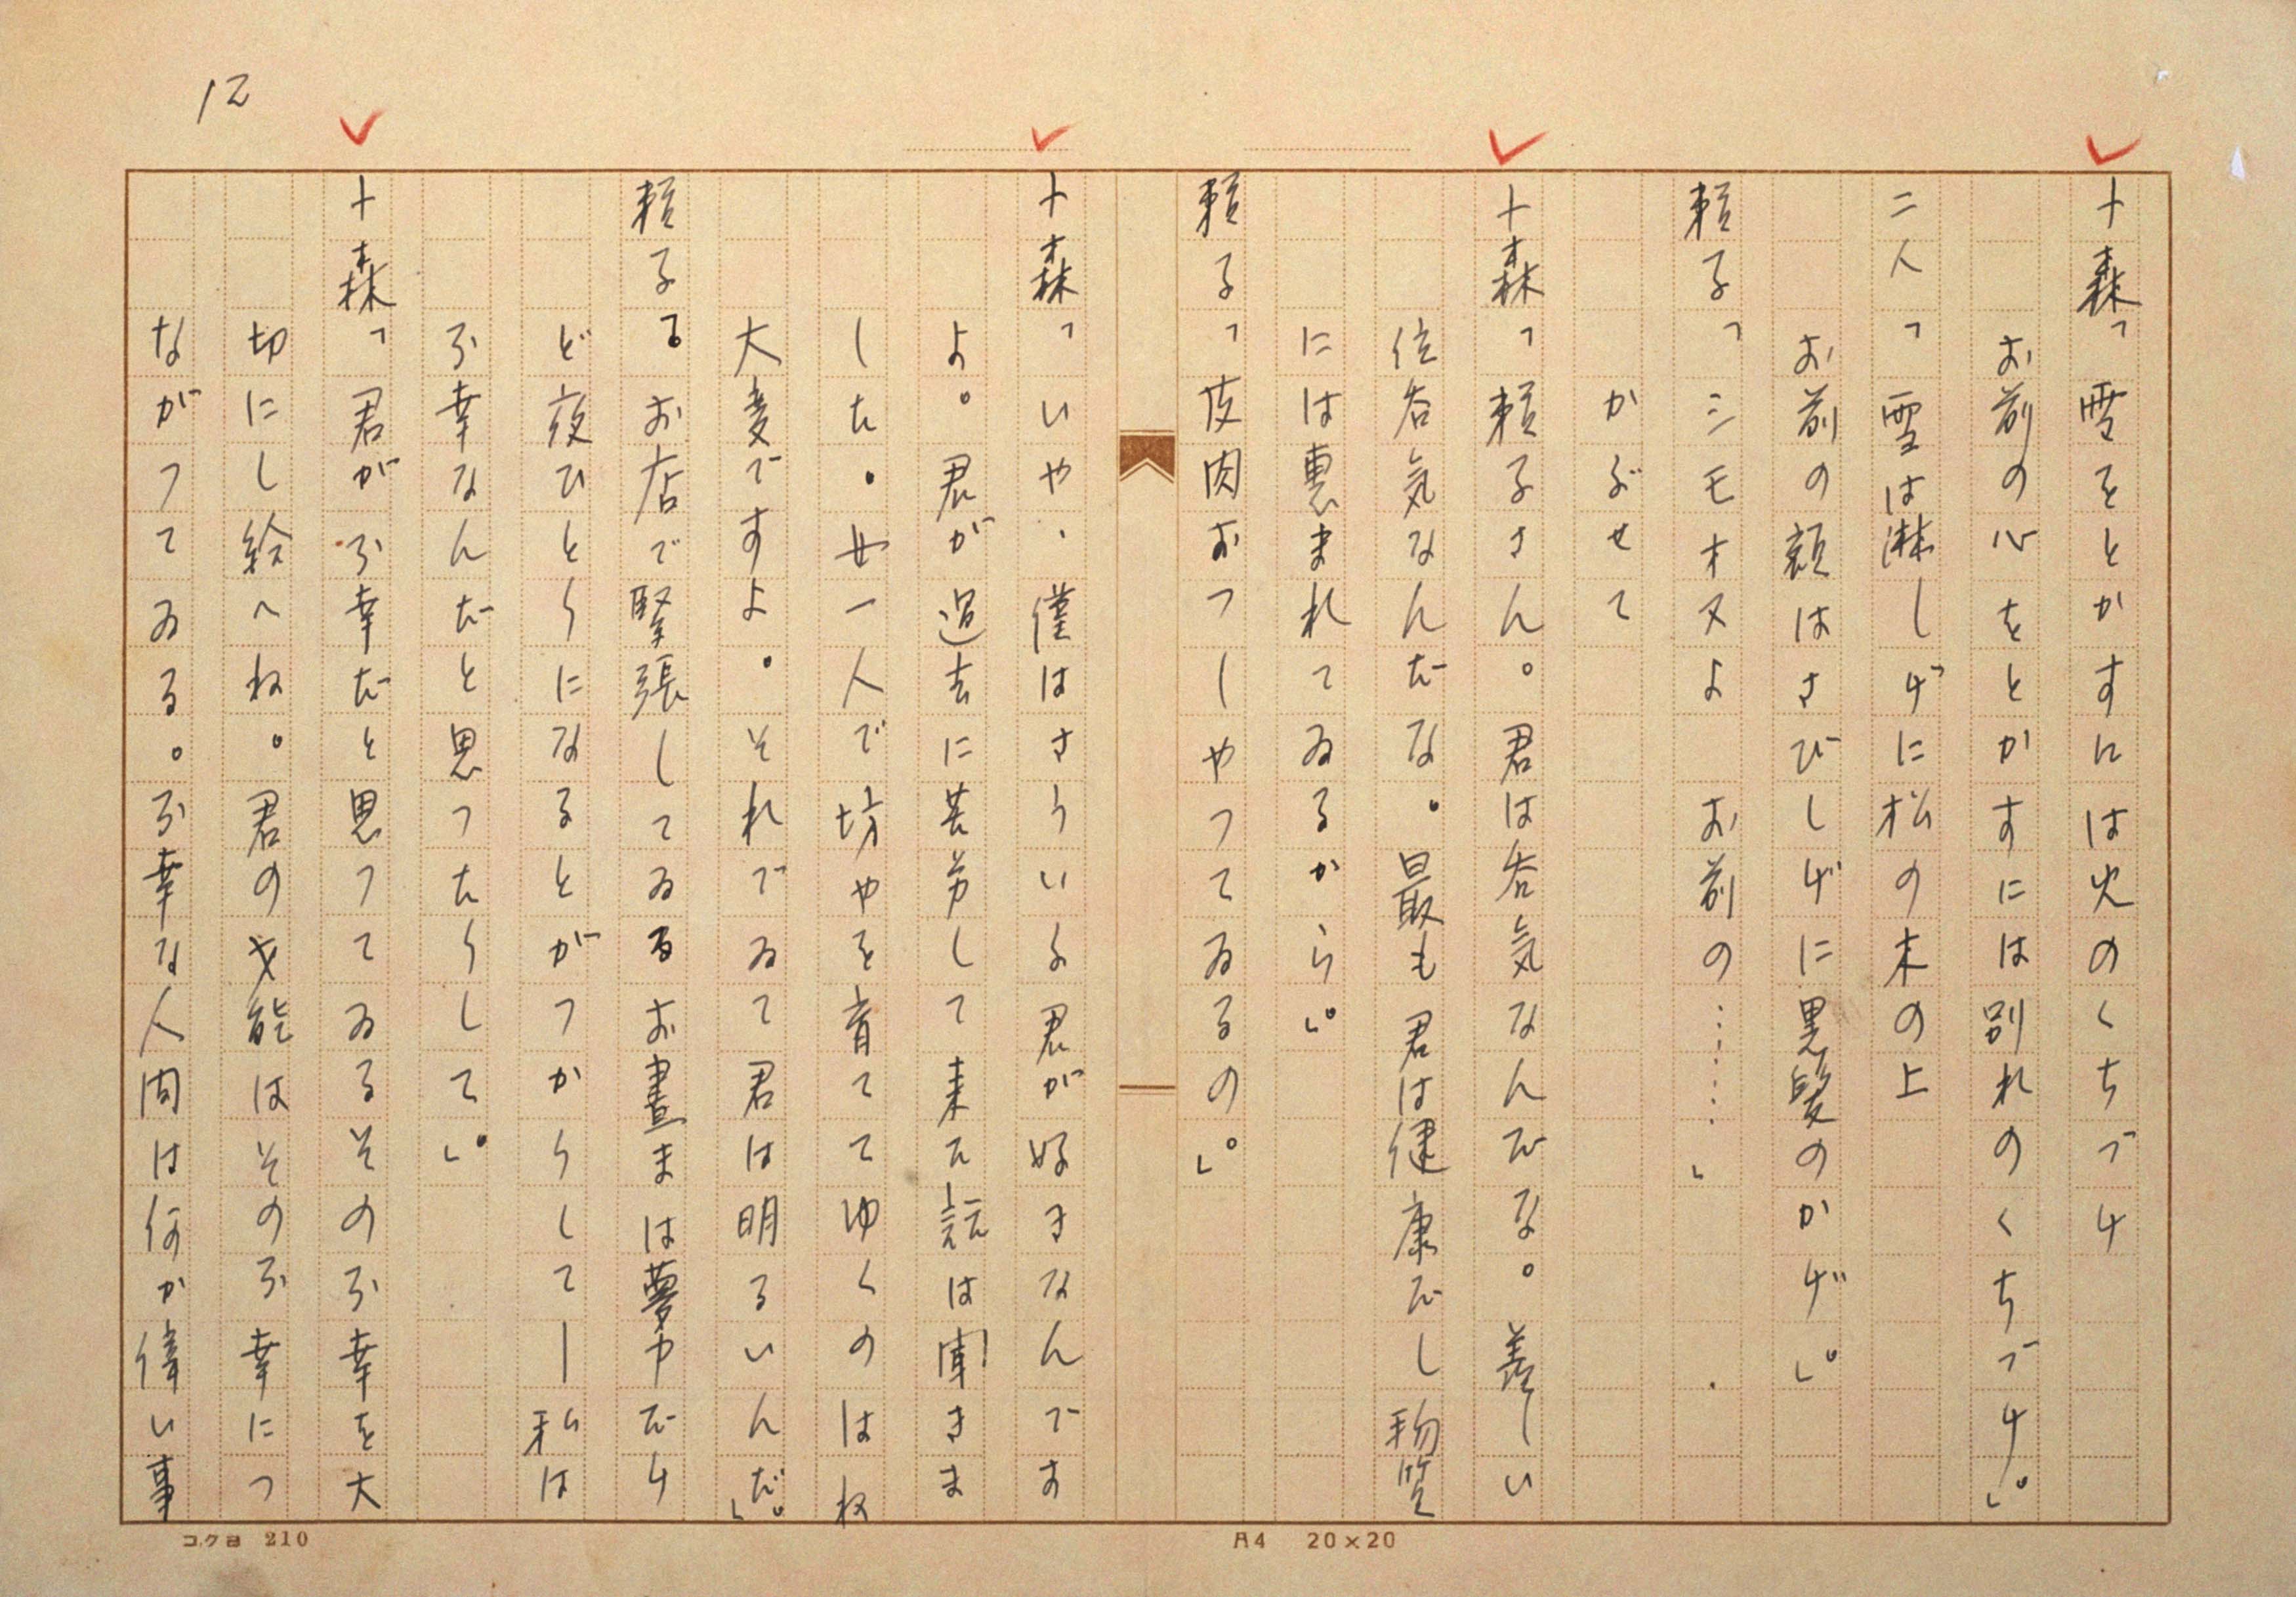 12
十森「雪をとかすには火のくちづけ
お前の心をとかすには別れのくちづけ。」
二人「雪は淋しげに松の木の上
お前の顔はさびしげに黒髪のかげ。」
頼子「シモオヌよ　お前の……」
かぶせて
十森「頼子さん。君は呑気なんだな。羨しい
位呑気なんだな。最も君は健康だし物質
には恵まれてゐるから。」
頼子「皮肉おつしやつてゐるの。」
十森「いや、僕はさういふ君が好きなんです
よ。君が過去に苦労して来た話は聞きま
した。女一人で坊やを育ててゆくのはね
大変ですよ。それでゐて君は明るいんだ。」
頼子「お店で緊張してゐるお晝まは夢中だけ
ど夜ひとりになるとがつかりして―私は
不幸なんだと思つたりして。」
十森「君が不幸だと思つてゐるその不幸を大
切にし給へね。君の才能はその不幸につ
ながつてゐる。不幸な人間は何か偉い事
コクヨ 210
A4 20×20